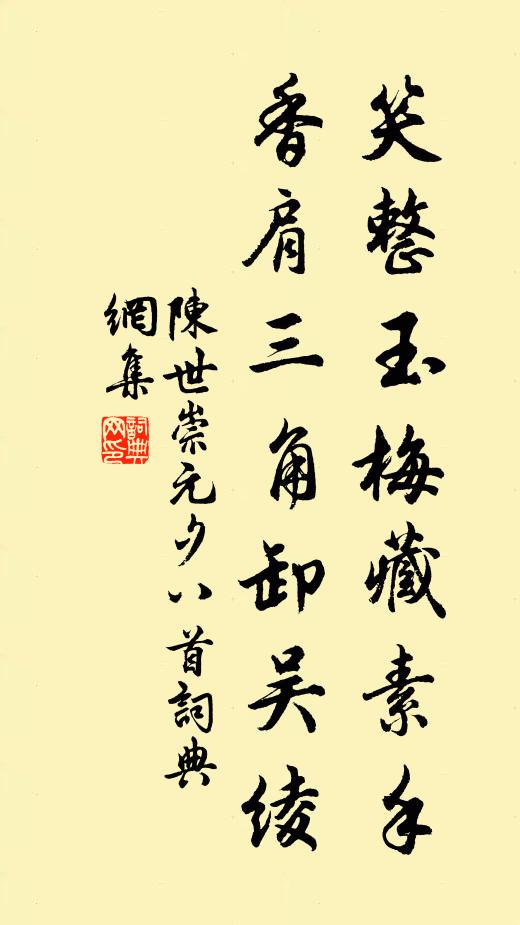 笑整玉梅藏素手
香肩三角卸吴綾
陳世崇元夕八首詞典
網集
詞典
网印